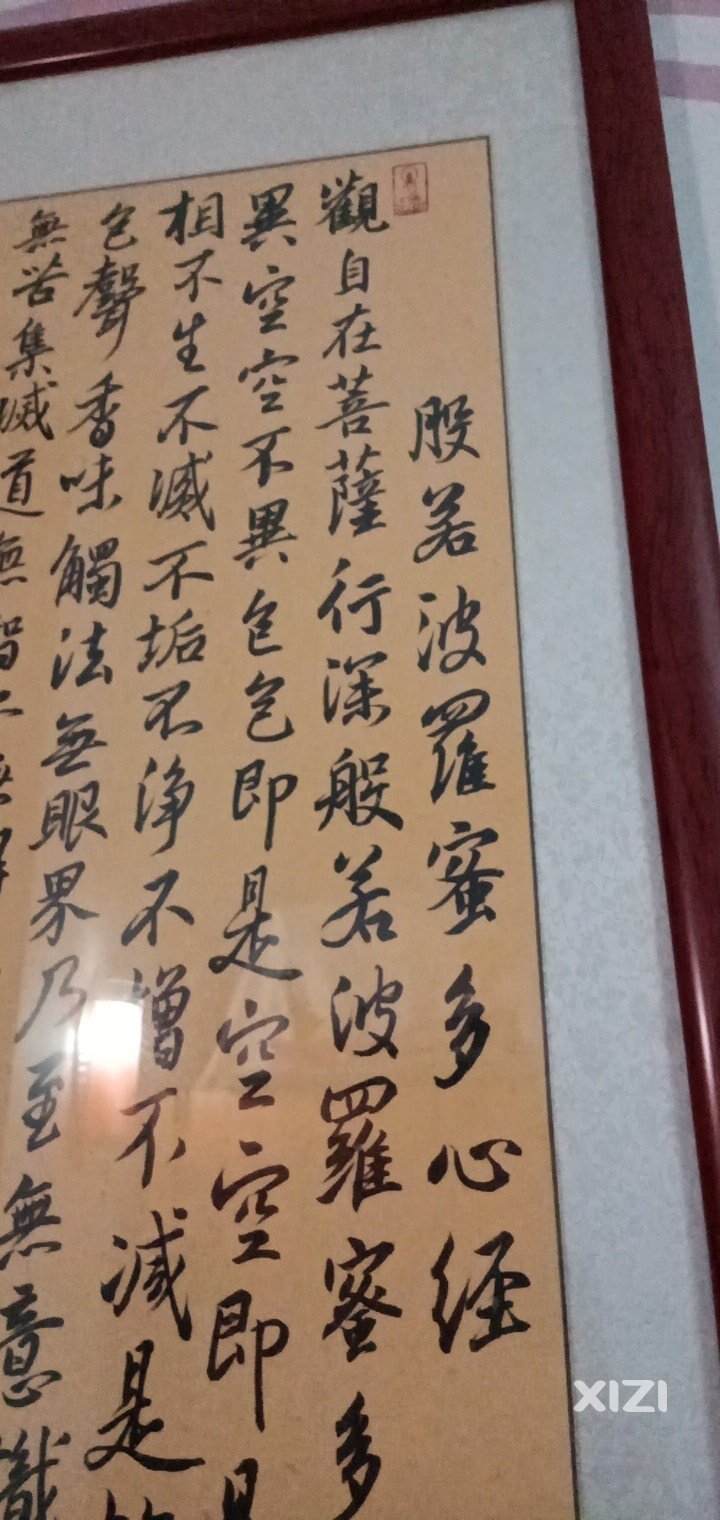 般若波羅蜜多心經
觀自在菩薩行深般若波羅蜜多
異空空不異色色即是空空即是
相不生不滅不垢不淨不增不減是
色聲香味觸法無眼界乃至無意識
無苦集滅道無智
XIZI